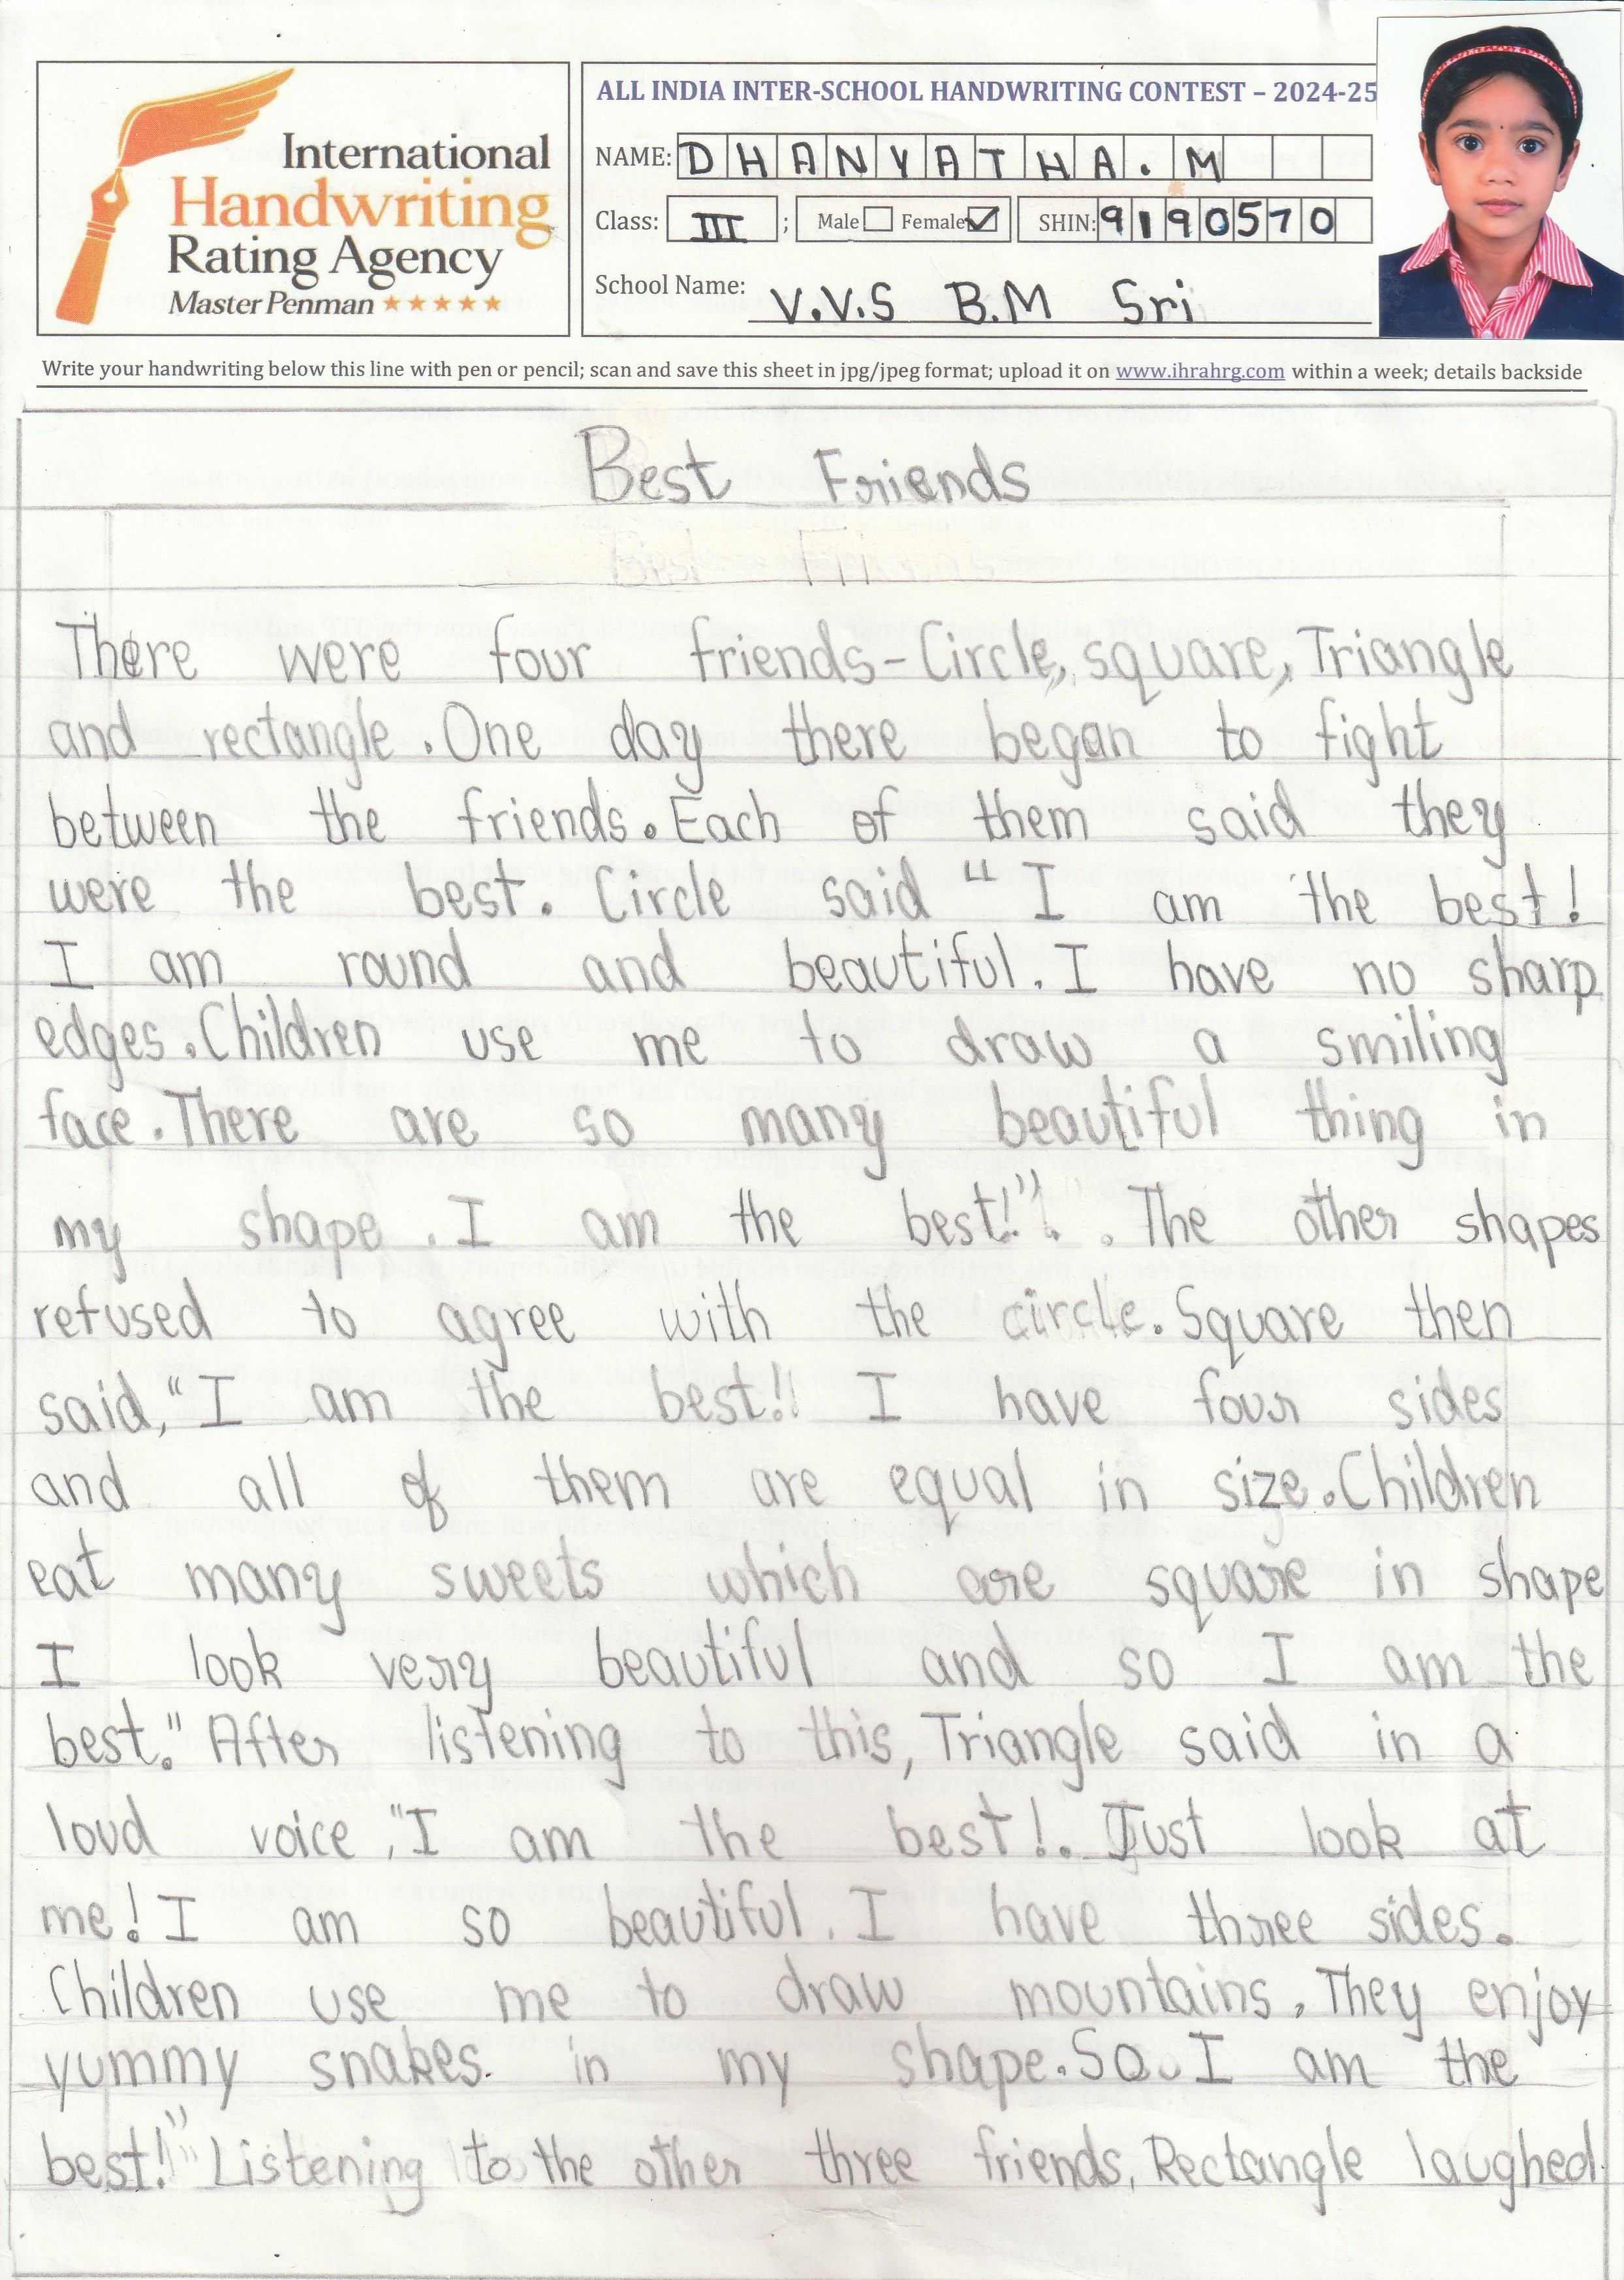 International
Handwriting
Rating Agency
Master Penman
ALL INDIA INTER-SCHOOL HANDWRITING CONTEST – 2024-25
NAME: DHANYATHA. M
Class: III ; Male Female SHIN: 9190570
School Name: V.V.S B.M Sri
Write your handwriting below this line with pen or pencil; scan and save this sheet in jpg/jpeg format; upload it on www.ihrahrg.com within a week; details backside
Best Friends
There were four friends-Circle, square, Triangle
and rectangle. One day there began to fight
between the friends. Each of them said they
were the best. Circle said " I am the best!
I am round and beautiful. I have no sharp
edges. Children use me to draw a smiling
face. There are so many beautiful thing in
my shape. I am the best!". The other shapes
refused to agree with the circle. Square then
said, "I am the best!! I have four sides
and all of them are equal in size. Children
eat many sweets which are square in shape
I look very beautiful and so I am the
best." After listening to this, Triangle said in a
loud voice, "I am the best!. Just look at
me! I am so beautiful. I have three sides.
Children use me to draw mountains. They enjoy
yummy snakes. in my shape. So. I am the
best!" Listening to the other three friends, Rectangle laughed